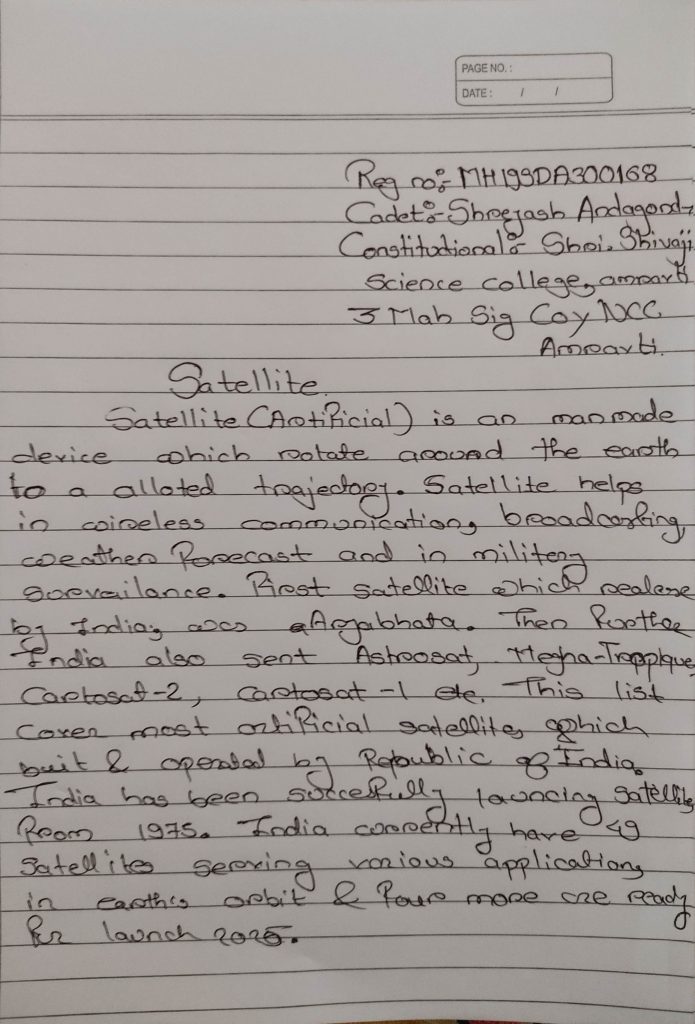 PAGE NO. :
DATE : / /
Reg no:- MH19SDA300168
Cadet:- Shreejash Andagond
Constitutional:- Shri. Shivaji
Science college, amarvti
3 Mah Sig Coy NCC
Amravti.
Satellite.
Satellite (Artificial) is an manmade
device which rotate around the earth
to a alloted trajectory. Satellite helps
in wireless communication, broadcasting,
weather forecast and in militery
survailance. First satellite which realese
by India, was Aryabhata. Then further
India also sent Astrosat, Megha-Tropique,
Cartosat-2, cartosat-1 etc. This list
cover most artificial satellites which
buit & operated by Republic of India.
India has been succefully launcing satellite
from 1975. India currently have 49
satellites serving various applications
in earth's orbit & four more are ready
for launch 2025.